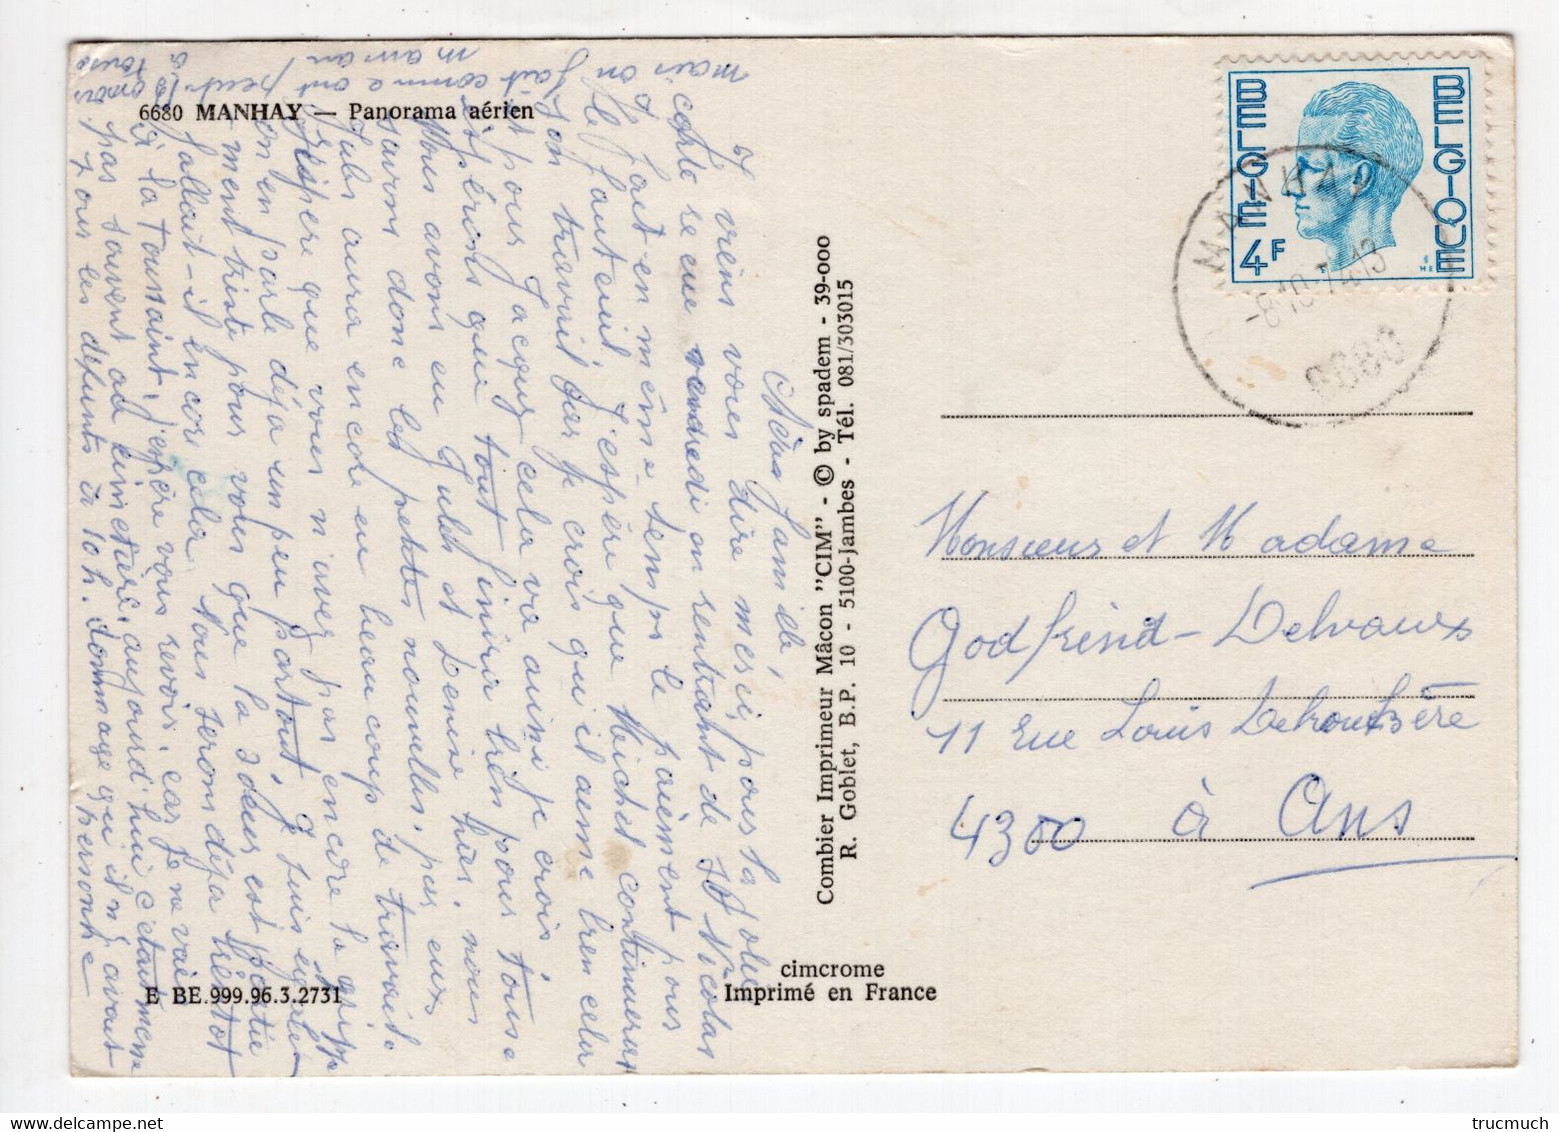 6680 MANHAY — Panorama aérien
Chère famille,
Je viens vous dire merci pour la jolie
carte reçue vendredi en rentrant de St Nicolas
Il faut en même temps le paiement pour
le fauteuil. J'espère que Michel continuera
son travail car je crois qu'il aime bien cela
et pour Jacques cela va aussi je crois,
espérons que tout finira bien pour tous
Nous avons eu Jules et Denise hier, nous
savons donc les petites nouvelles, par eux
Jules aura encore eu beaucoup de travail.
J'espère que vous n'avez pas encore la grippe
on en parle déjà un peu partout. Je suis égale-
ment triste pour vous que la soeur est partie
fallait-il encore cela. Nous serons déjà bientôt
à la Toussaint, j'espère vous revoir, car je ne vais
pas souvent au cimetière, aujourd'hui c'était messe
pour les défunts à 10 h. dommage qu'il n'y avait
personne
mais on fait comme on peut
maman
à tous
Combier Imprimeur Mâcon "CIM" - © by spadem - 39-000
R. Goblet, B.P. 10 - 5100-Jambes - Tél. 081/303015
E BE.999.96.3.2731
cimcrome
Imprimé en France
BELGIE
BELGIQUE
4F
MANHAY
-6-10-74-13
6680
Monsieur et Madame
Godfrind-Delvaux
11 Rue Louis Dehoubère
4300 à Ans
trucmuch